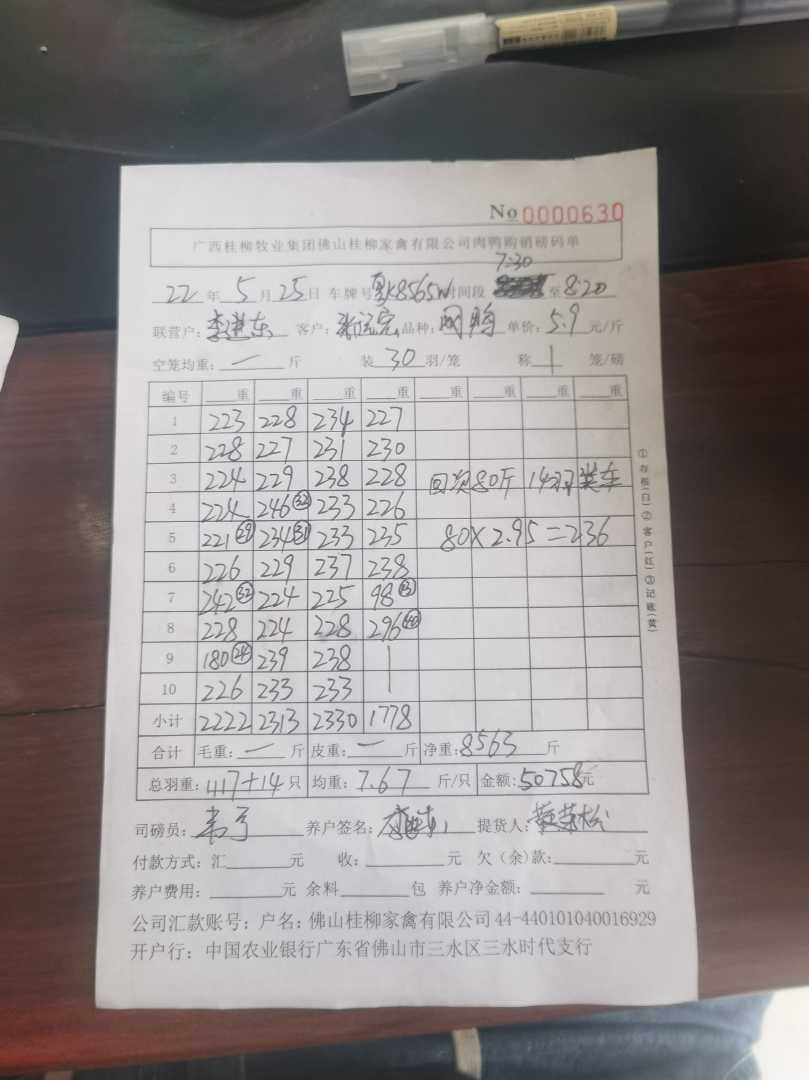 No 0000630
广西桂柳牧业集团佛山桂柳家禽有限公司肉鸭购销磅码单
7:30
22年5月25日 车牌号 K8565W 时间段 至8:20
联营户: 李进东 客户: 品种: 单价: 5.9 元/斤
空笼均重: — 斤 装 30 羽/笼 称 1 笼/磅
编号 重 重 重 重 重 重 重 重
1 223 228 234 227
2 228 227 231 230
3 224 229 238 228 回 80斤 14羽 车
4 224 246 (32) 233 226
5 221 (29) 234 (31) 233 235 80×2.95=236
6 226 229 237 238
7 242 (32) 224 225 98 (13)
8 228 224 228 296 (40)
9 180 (24) 239 238
10 226 233 233
小计 2222 2313 2330 1778
合计 毛重: — 斤 皮重: — 斤 净重: 8563 斤
总羽重: 1117+14 只 均重: 7.67 斤/只 金额: 50758元
司磅员: 养户签名: 提货人:
付款方式: 汇 元 收: 元 欠(余)款: 元
养户费用: 元 余料 包 养户净金额: 元
公司汇款账号: 户名: 佛山桂柳家禽有限公司 44-440101040016929
开户行: 中国农业银行广东省佛山市三水区三水时代支行
①存根(白)②客户(红)③记账(黄)